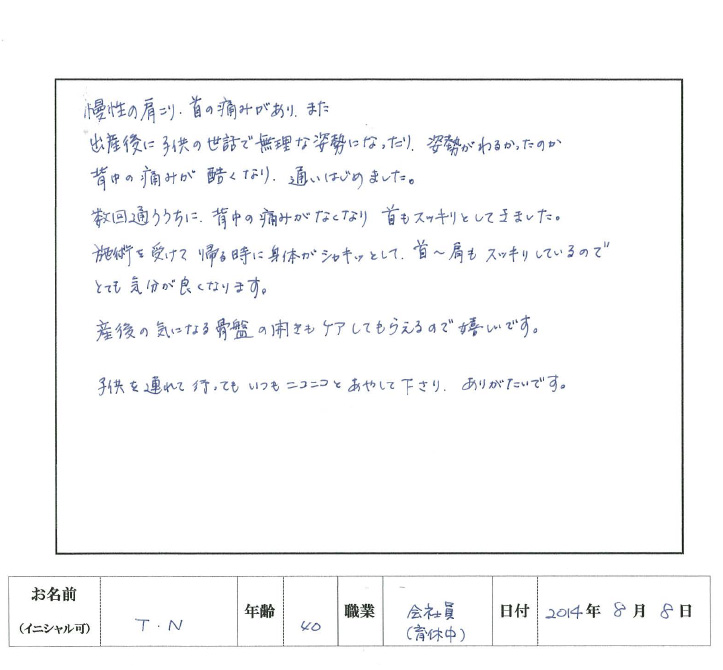 慢性の肩こり、首の痛みがあり、また
出産後に子供の世話で無理な姿勢になったり、姿勢がわるかったのか
背中の痛みが酷くなり、通いはじめました。
数回通ううちに、背中の痛みがなくなり 首もスッキリとしてきました。
施術を受けて帰る時に身体がシャキッとして、首〜肩もスッキリしているので
とても気分が良くなります。
産後の気になる骨盤の開きもケアしてもらえるので嬉しいです。
子供を連れて行ってもいつもニコニコとあやして下さり、ありがたいです。
お名前
(イニシャル可)
T・N
年齢
40
職業
会社員
(育休中)
日付
2014年 8月 8日